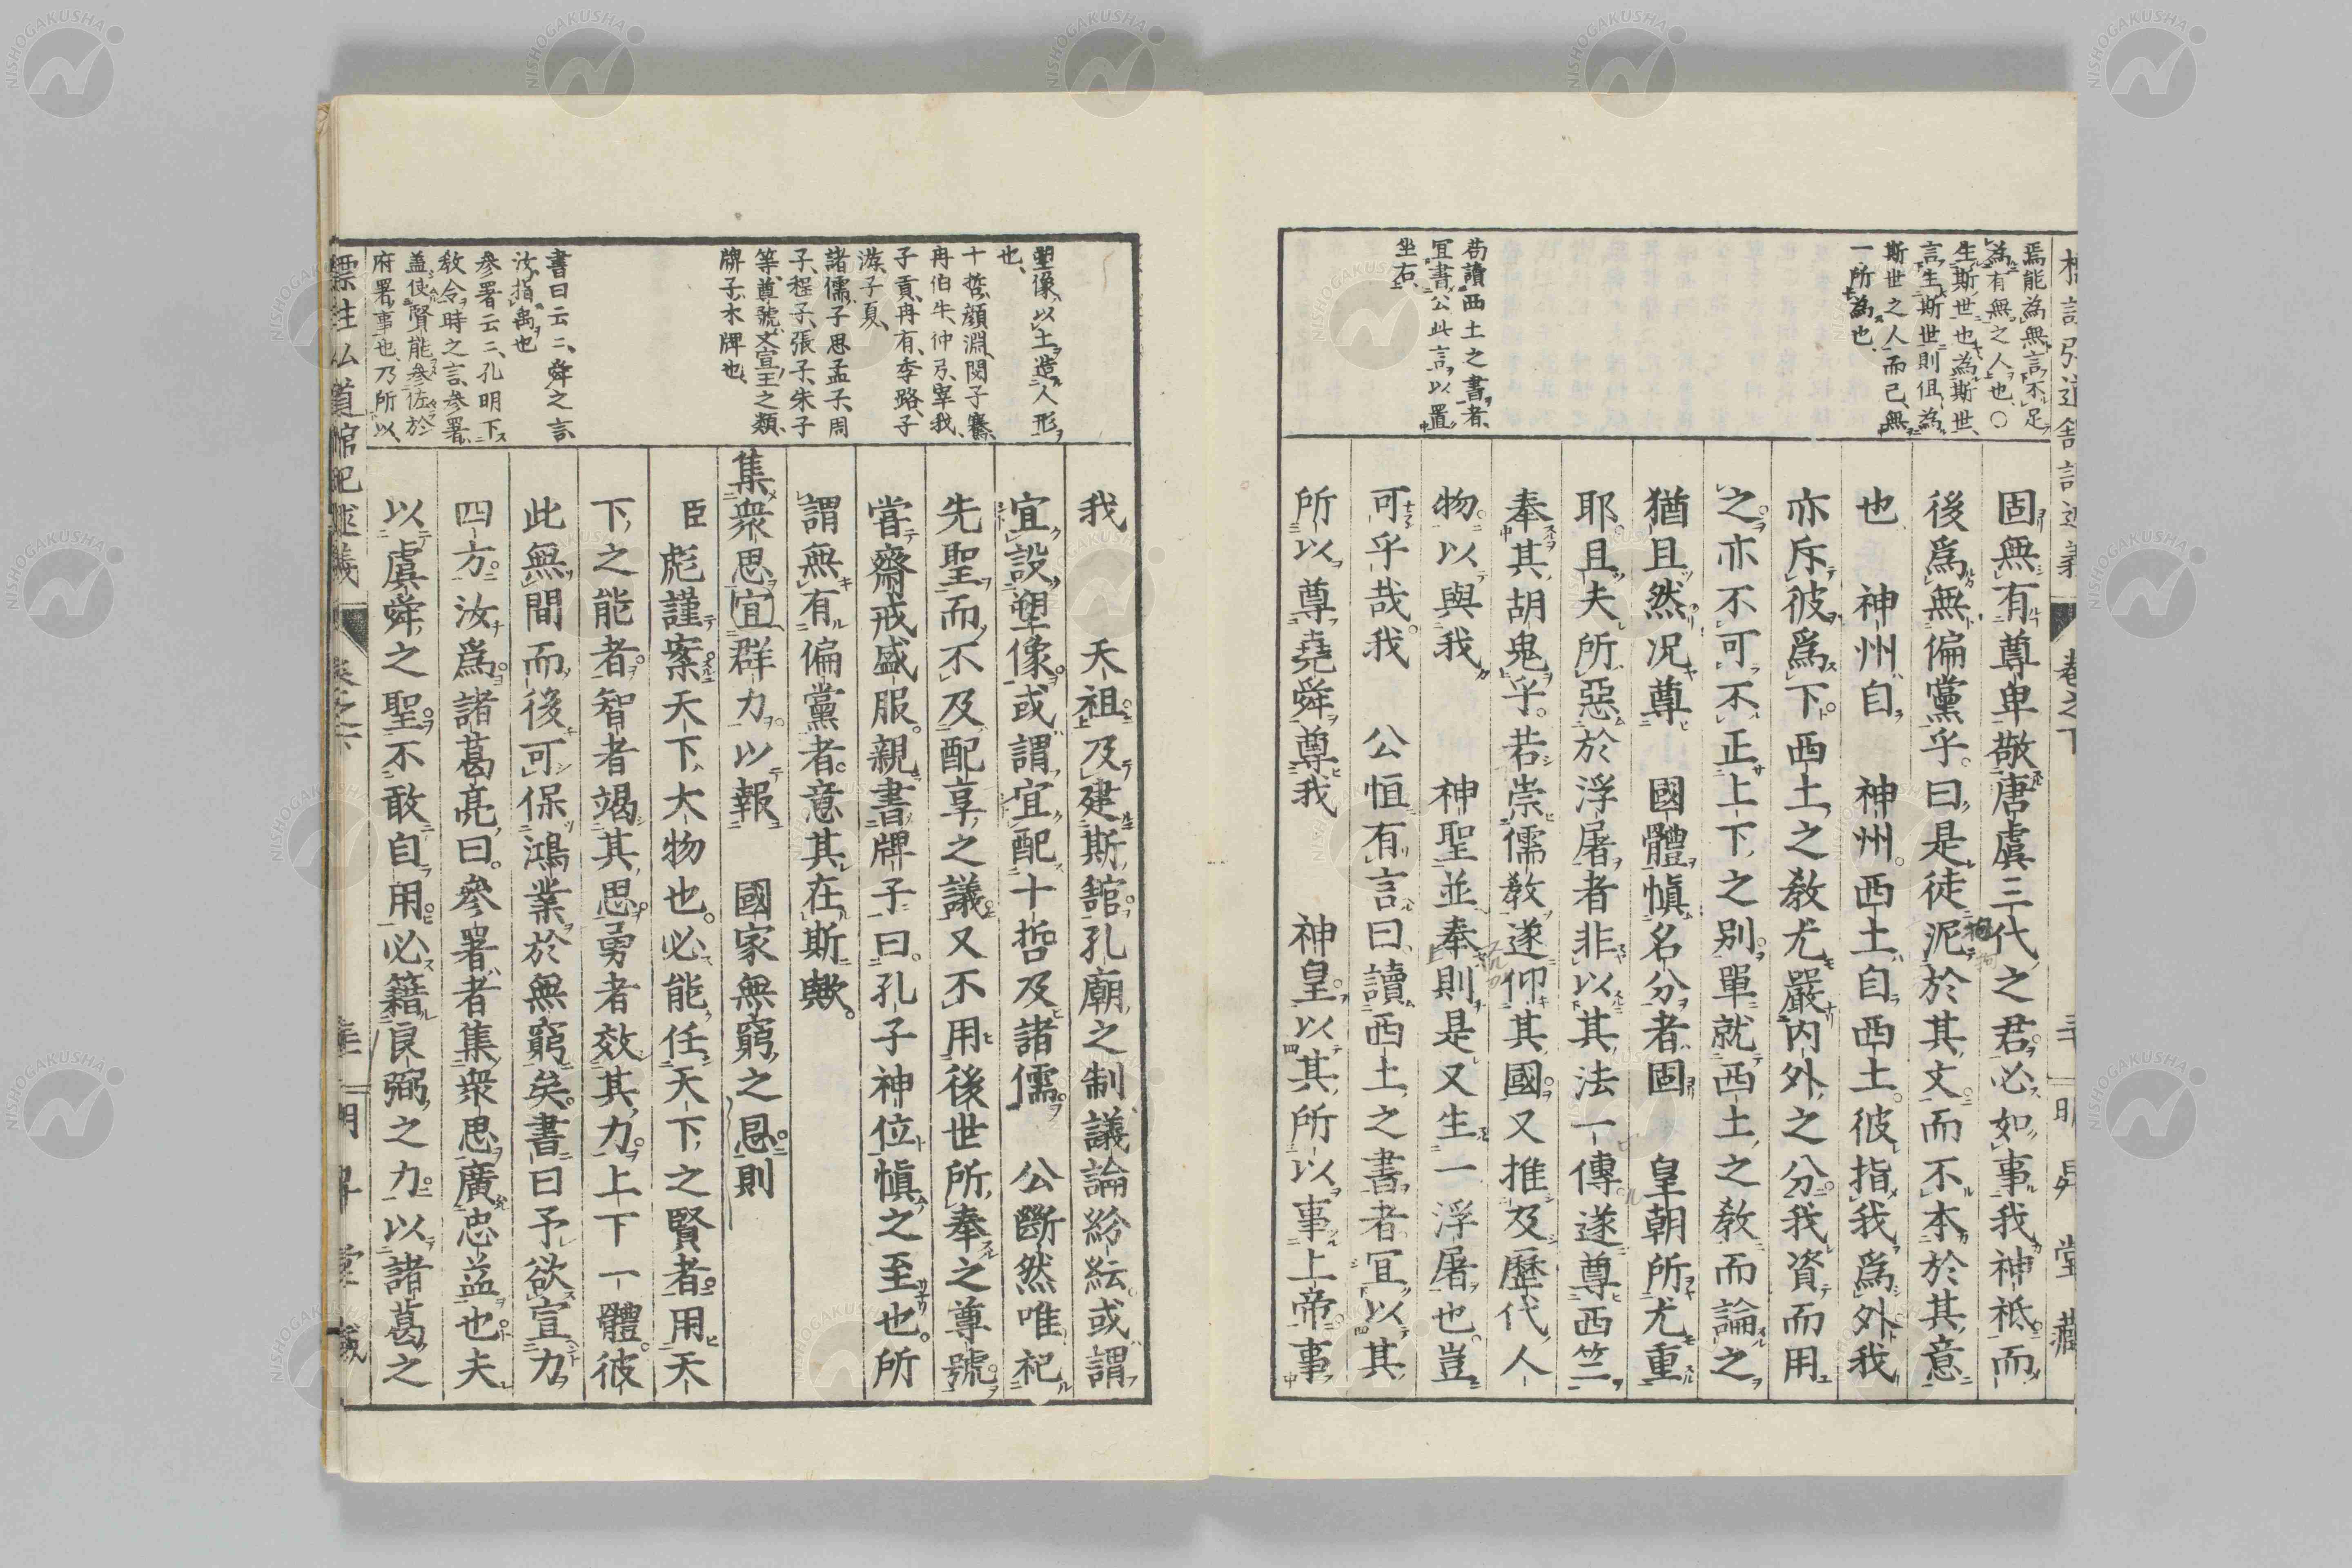 焉能為無言不足
為有無之人也〇
生斯世也為斯世
言生斯世則但為
斯世之人而已無
一所為也
苟讀西土之書者
冝書公此言以置
坐右
固無有尊卑敬唐虞三代之君必如事我神祇而
後爲無偏黨乎曰是徒泥於其文而不本於其意
也 神州自 神州西土自西土彼指我爲外我
亦斥彼爲下西土之教尤嚴內外之分我資而用
之亦不可不正上下之別單就西土之教而論之
猶且然況尊 國體愼名分者固 皇朝所尤重
耶且夫所惡於浮屠者非以其法一傳遂尊西竺
奉其胡鬼乎若崇儒教遂仰其國又推及歷代人
物以與我 神聖並奉則是又生一浮屠也豈
可乎哉我 公恒有言曰讀西土之書者冝以其
所以尊堯舜尊我 神皇以其所以事上帝事
塑像以土造人形
也
十哲顔淵閔子騫
冉伯牛仲弓宰我
子貢冉有季路子
游子夏
諸儒子思孟子周
子程子張子朱子
等尊號文宣王之類
牌子木牌也
書曰云云舜之言
汝指禹也
参署云云孔明下
教令時之言参署
蓋使賢能参佐於
府署事也乃所以
我 天祖及建斯館孔廟之制議論紛紜或謂
宜設塑像或謂宜配十哲及諸儒 公斷然唯祀
先聖而不及配享之議又不用後世所奉之尊號
嘗齋戒盛服親書牌子曰孔子神位愼之至也所
謂無有偏黨者意其在斯歟
集衆思宣群力以報 國家無窮之恩則
臣彪謹案天下大物也必能任天下之賢者用天
下之能者智者竭其思勇者效其力上下一體彼
此無間而後可保鴻業於無窮矣書曰予欲宣力
四方汝爲諸葛亮曰參署者集衆思廣忠益也夫
以虞舜之聖不敢自用必籍良弼之力以諸葛之